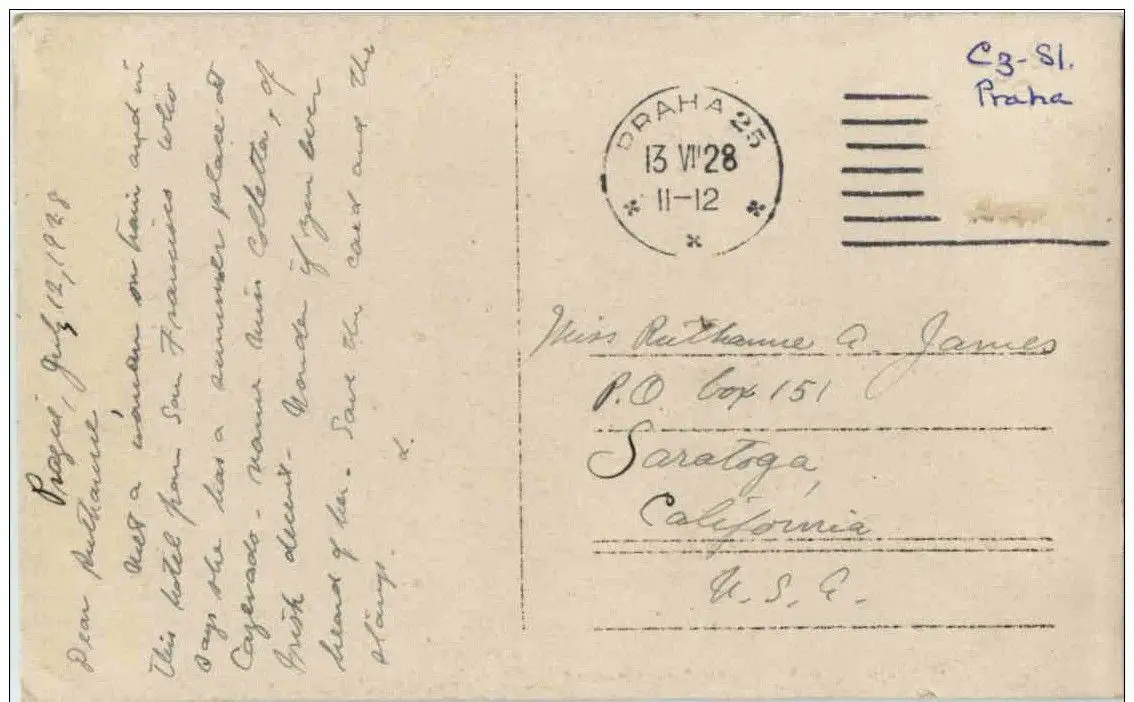 Prague, July 12, 1928
Dear Ruthanne
Met a woman on train and in
this hotel from San Francisco who
says she has a summer place at
Cazenado - name Miss Colletta, of
Irish decent - Wonder if you ever
heard of her - Save the card and the
stamp.
L.
PRAHA 25
13 VII 28
11-12
Cz-Sl.
Praha
Miss Ruthanne A. James
P.O. box 151
Saratoga,
California
U.S.A.